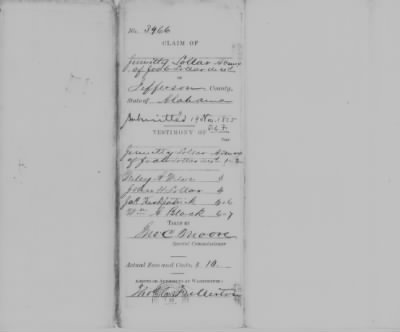 No. 3966
CLAIM OF
Jemitty Sollar Admx
of Job Sollar decd
OF
Jefferson County,
State of Alabama
Submitted 19 Nov. 1875
TESTIMONY OF
Page
Jemitty Sollar Admx
of Job Sollar decd 1-2
3
John H Sollar 4
Jas. Kirkpatrick 5-6
Wm G Block 6-7
TAKEN BY
Jno C Moore
Special Commissioner
Actual Fees and Costs, $ 10.
AGENTS OR ATTORNEYS AT WASHINGTON:
Fullerton